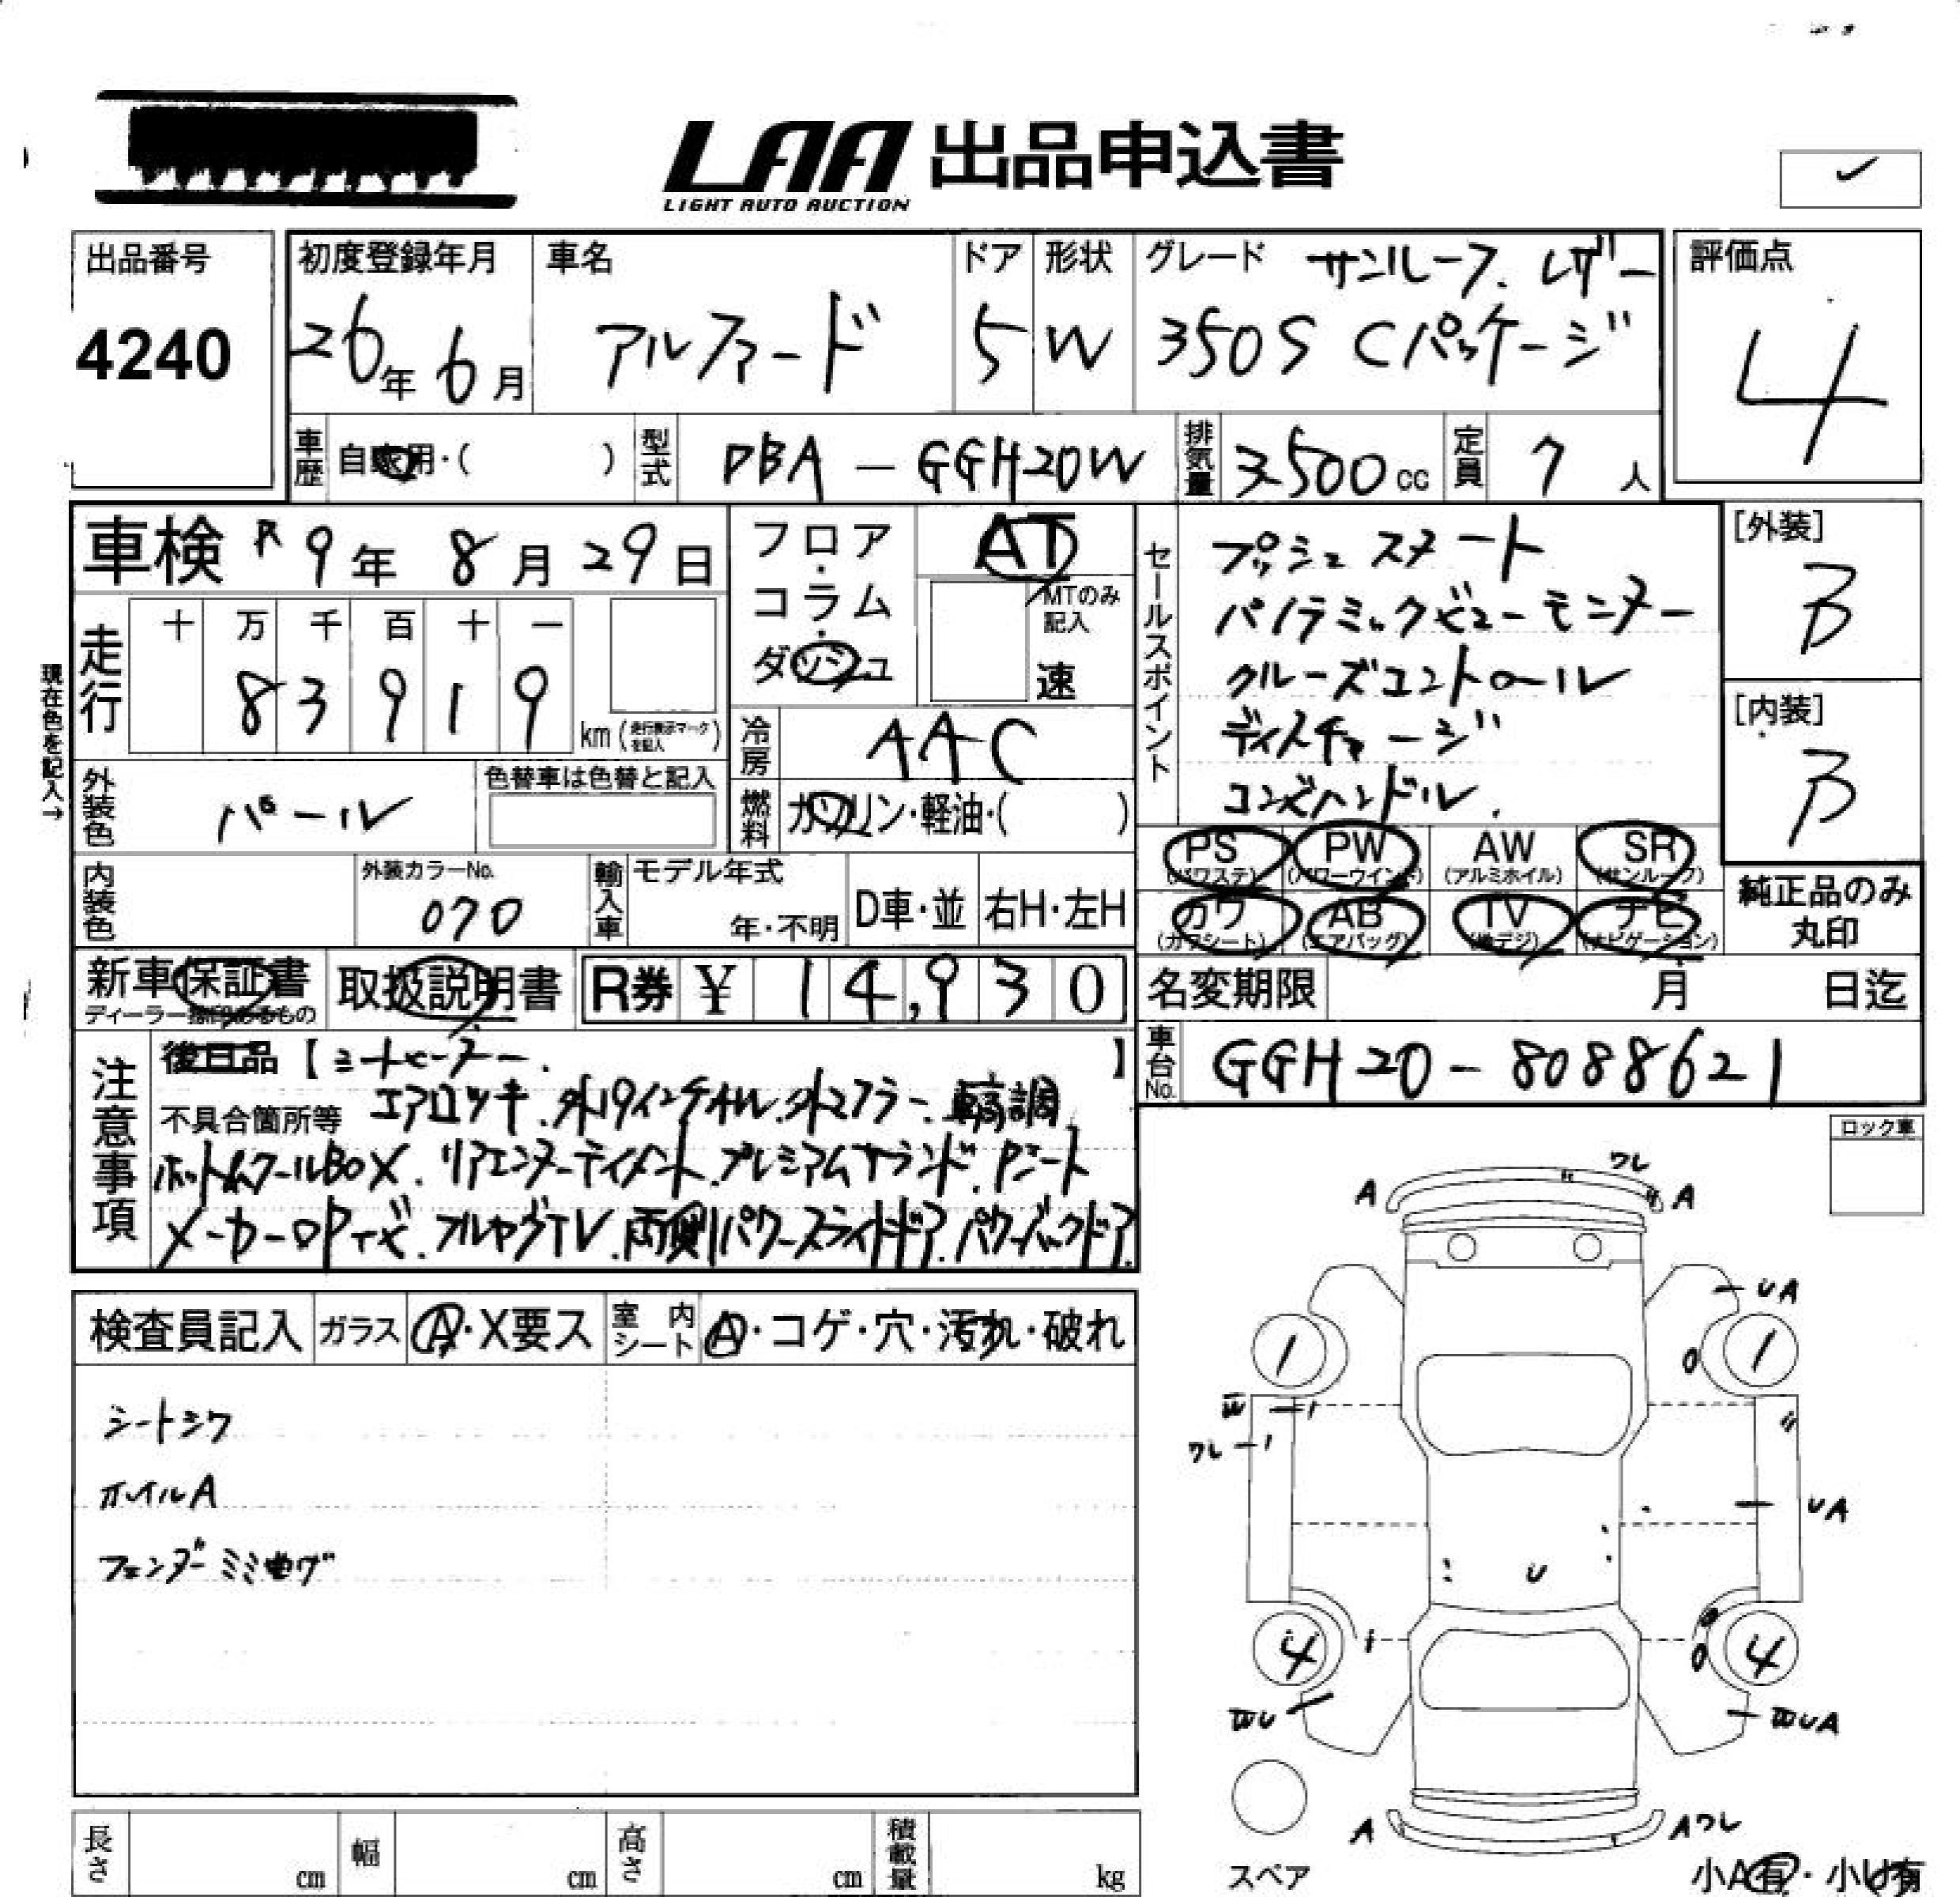 LAA 出品申込書
LIGHT AUTO AUCTION
出品番号
4240
初度登録年月
26年 6月
車名
アルファード
ドア
5
形状
W
グレード サンルーフ. レザー
350S Cパッケージ
評価点
4
車歴 自家用・( )
型式 DBA - GGH20W
排気量 3500cc
定員 7人
車検 R 9年 8月 29日
走行
十 万 千 百 十 一
8 3 9 1 9
km (走行表示マークを記入)
現在色を記入→
フロア・コラム・ダッシュ
AT
MTのみ記入
速
冷房 AAC
燃料 ガソリン・軽油・( )
セールスポイント
プッシュスタート
パノラミックビューモニター
クルーズコントロール
ディスチャージ
コンビハンドル.
[外装]
B
[内装]
B
外装色 パール
色替車は色替と記入
内装色
外装カラーNo.
070
輸入車
モデル年式
年・不明
D車・並
右H・左H
PS (パワステ)
PW (パワーウインド)
AW (アルミホイル)
SR (サンルーフ)
カワ (カワシート)
AB (エアバッグ)
TV (地デジ)
ナビ (ナビゲーション)
純正品のみ
丸印
新車保証書
ディーラー捺印あるもの
取扱説明書
R券 ¥ 14,930
名変期限 月 日迄
車台No. GGH20-8088621
注意事項
後日品【シートヒーター. 】
不具合箇所等 エアロツキ.外19インチAW.外マフラー.車高調
ホット&クールBOX.リアエンターテイメント.プレミアムサウンド.Pシート
メーカーOPナビ.フルセグTV.両側パワースライドドア.パワーバックドア.
ロック車
検査員記入
ガラス A・X要ス
室内シート A・コゲ・穴・汚れ・破れ
シートシワ
ホイルA
フェンダーミミ曲げ
ワレ
A
A
UA
1
1
0
W
ワレ
UA
U
4
4
0
WU
WUA
A
Aワレ
スペア
小A有・小U有
長さ cm
幅 cm
高さ cm
積載量 kg